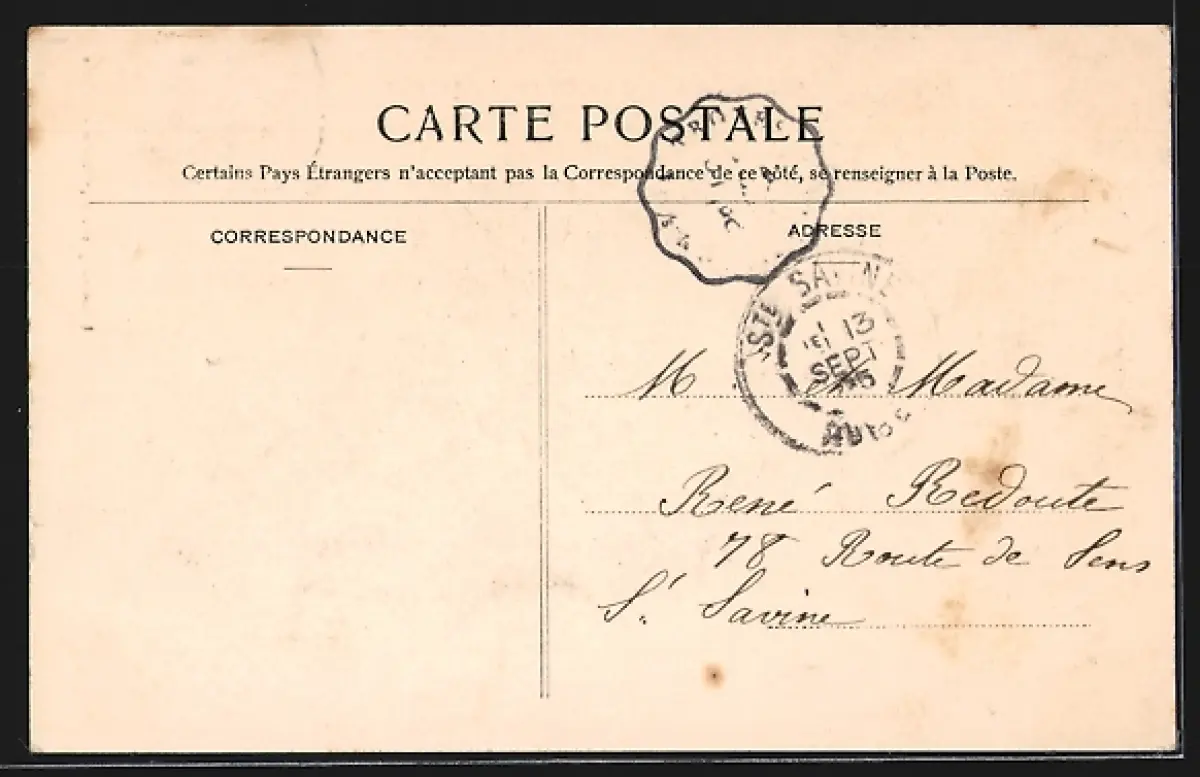 CARTE POSTALE
Certains Pays Étrangers n'acceptant pas la Correspondance de ce côté, se renseigner à la Poste.
CORRESPONDANCE
ADRESSE
STE SAVINE
13
SEPT
M et Madame
René Redoute
78 Route de Sens
St. Savine